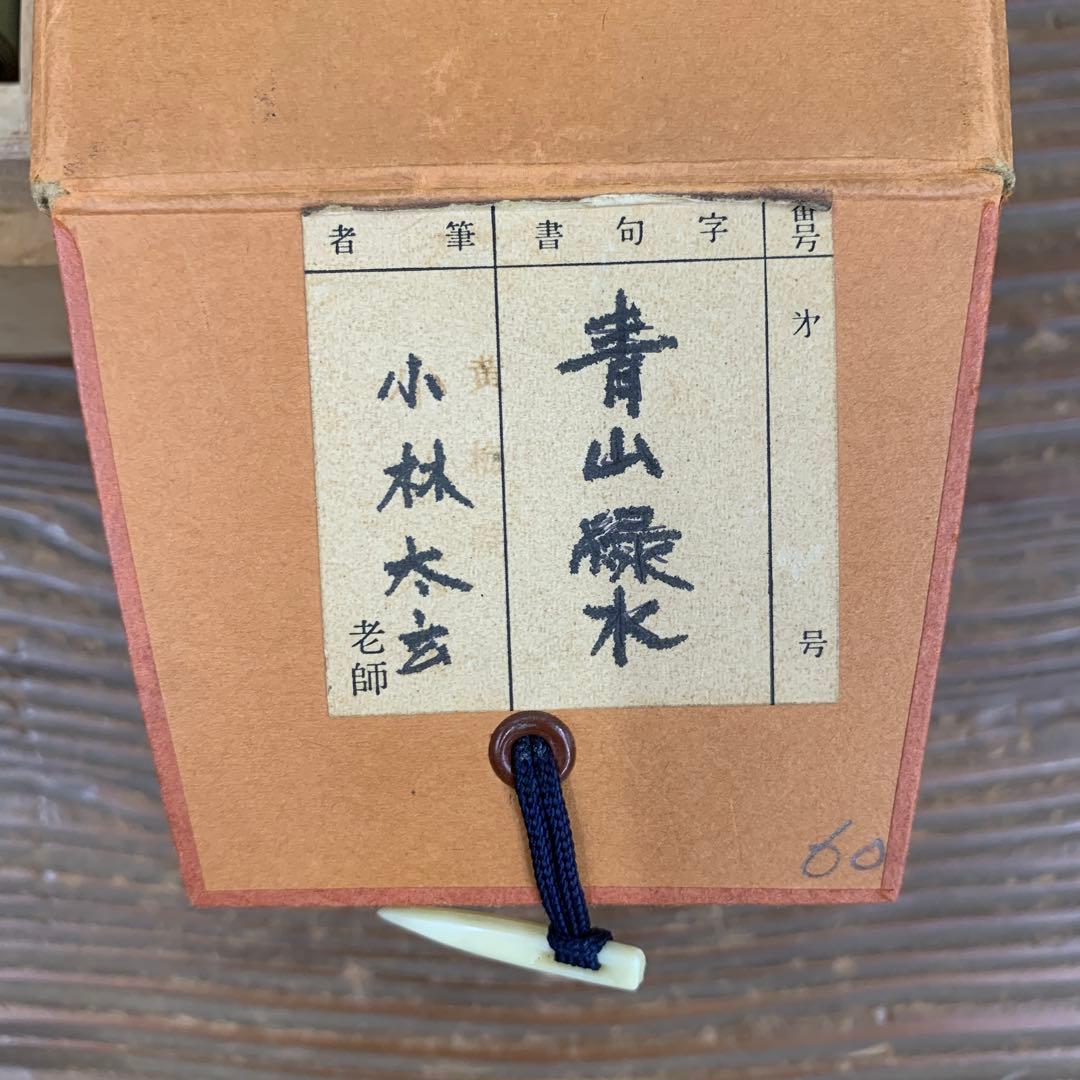 番号
才
号
字句書
青山緑水
筆者
小林太玄
老師
60